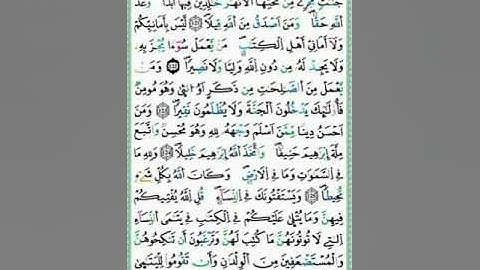 جَنَّٰتٍ تَجْرِي مِن تَحْتِهَا الْأَنْهَٰرُ خَٰلِدِينَ فِيهَا أَبَدًا ۖ وَعْدَ
اللَّهِ حَقًّا ۚ وَمَنْ أَصْدَقُ مِنَ اللَّهِ قِيلًا ۝ لَّيْسَ بِأَمَانِيِّكُمْ
وَلَا أَمَانِيِّ أَهْلِ الْكِتَٰبِ ۗ مَن يَعْمَلْ سُوءًا يُجْزَ بِهِ
وَلَا يَجِدْ لَهُ مِن دُونِ اللَّهِ وَلِيًّا وَلَا نَصِيرًا ۝ وَمَن
يَعْمَلْ مِنَ الصَّٰلِحَٰتِ مِن ذَكَرٍ أَوْ أُنثَىٰ وَهُوَ مُؤْمِنٌ
فَأُولَٰئِكَ يَدْخُلُونَ الْجَنَّةَ وَلَا يُظْلَمُونَ نَقِيرًا ۝ وَمَنْ
أَحْسَنُ دِينًا مِّمَّنْ أَسْلَمَ وَجْهَهُ لِلَّهِ وَهُوَ مُحْسِنٌ وَاتَّبَعَ
مِلَّةَ إِبْرَٰهِيمَ حَنِيفًا ۗ وَاتَّخَذَ اللَّهُ إِبْرَٰهِيمَ خَلِيلًا ۝ وَلِلَّهِ مَا
فِي السَّمَٰوَٰتِ وَمَا فِي الْأَرْضِ ۚ وَكَانَ اللَّهُ بِكُلِّ شَيْءٍ
مُّحِيطًا ۝ وَيَسْتَفْتُونَكَ فِي النِّسَاءِ ۖ قُلِ اللَّهُ يُفْتِيكُمْ
فِيهِنَّ وَمَا يُتْلَىٰ عَلَيْكُمْ فِي الْكِتَٰبِ فِي يَتَٰمَى النِّسَاءِ
الَّٰتِي لَا تُؤْتُونَهُنَّ مَا كُتِبَ لَهُنَّ وَتَرْغَبُونَ أَن تَنكِحُوهُنَّ
وَالْمُسْتَضْعَفِينَ مِنَ الْوِلْدَٰنِ وَأَن تَقُومُوا لِلْيَتَٰمَىٰ